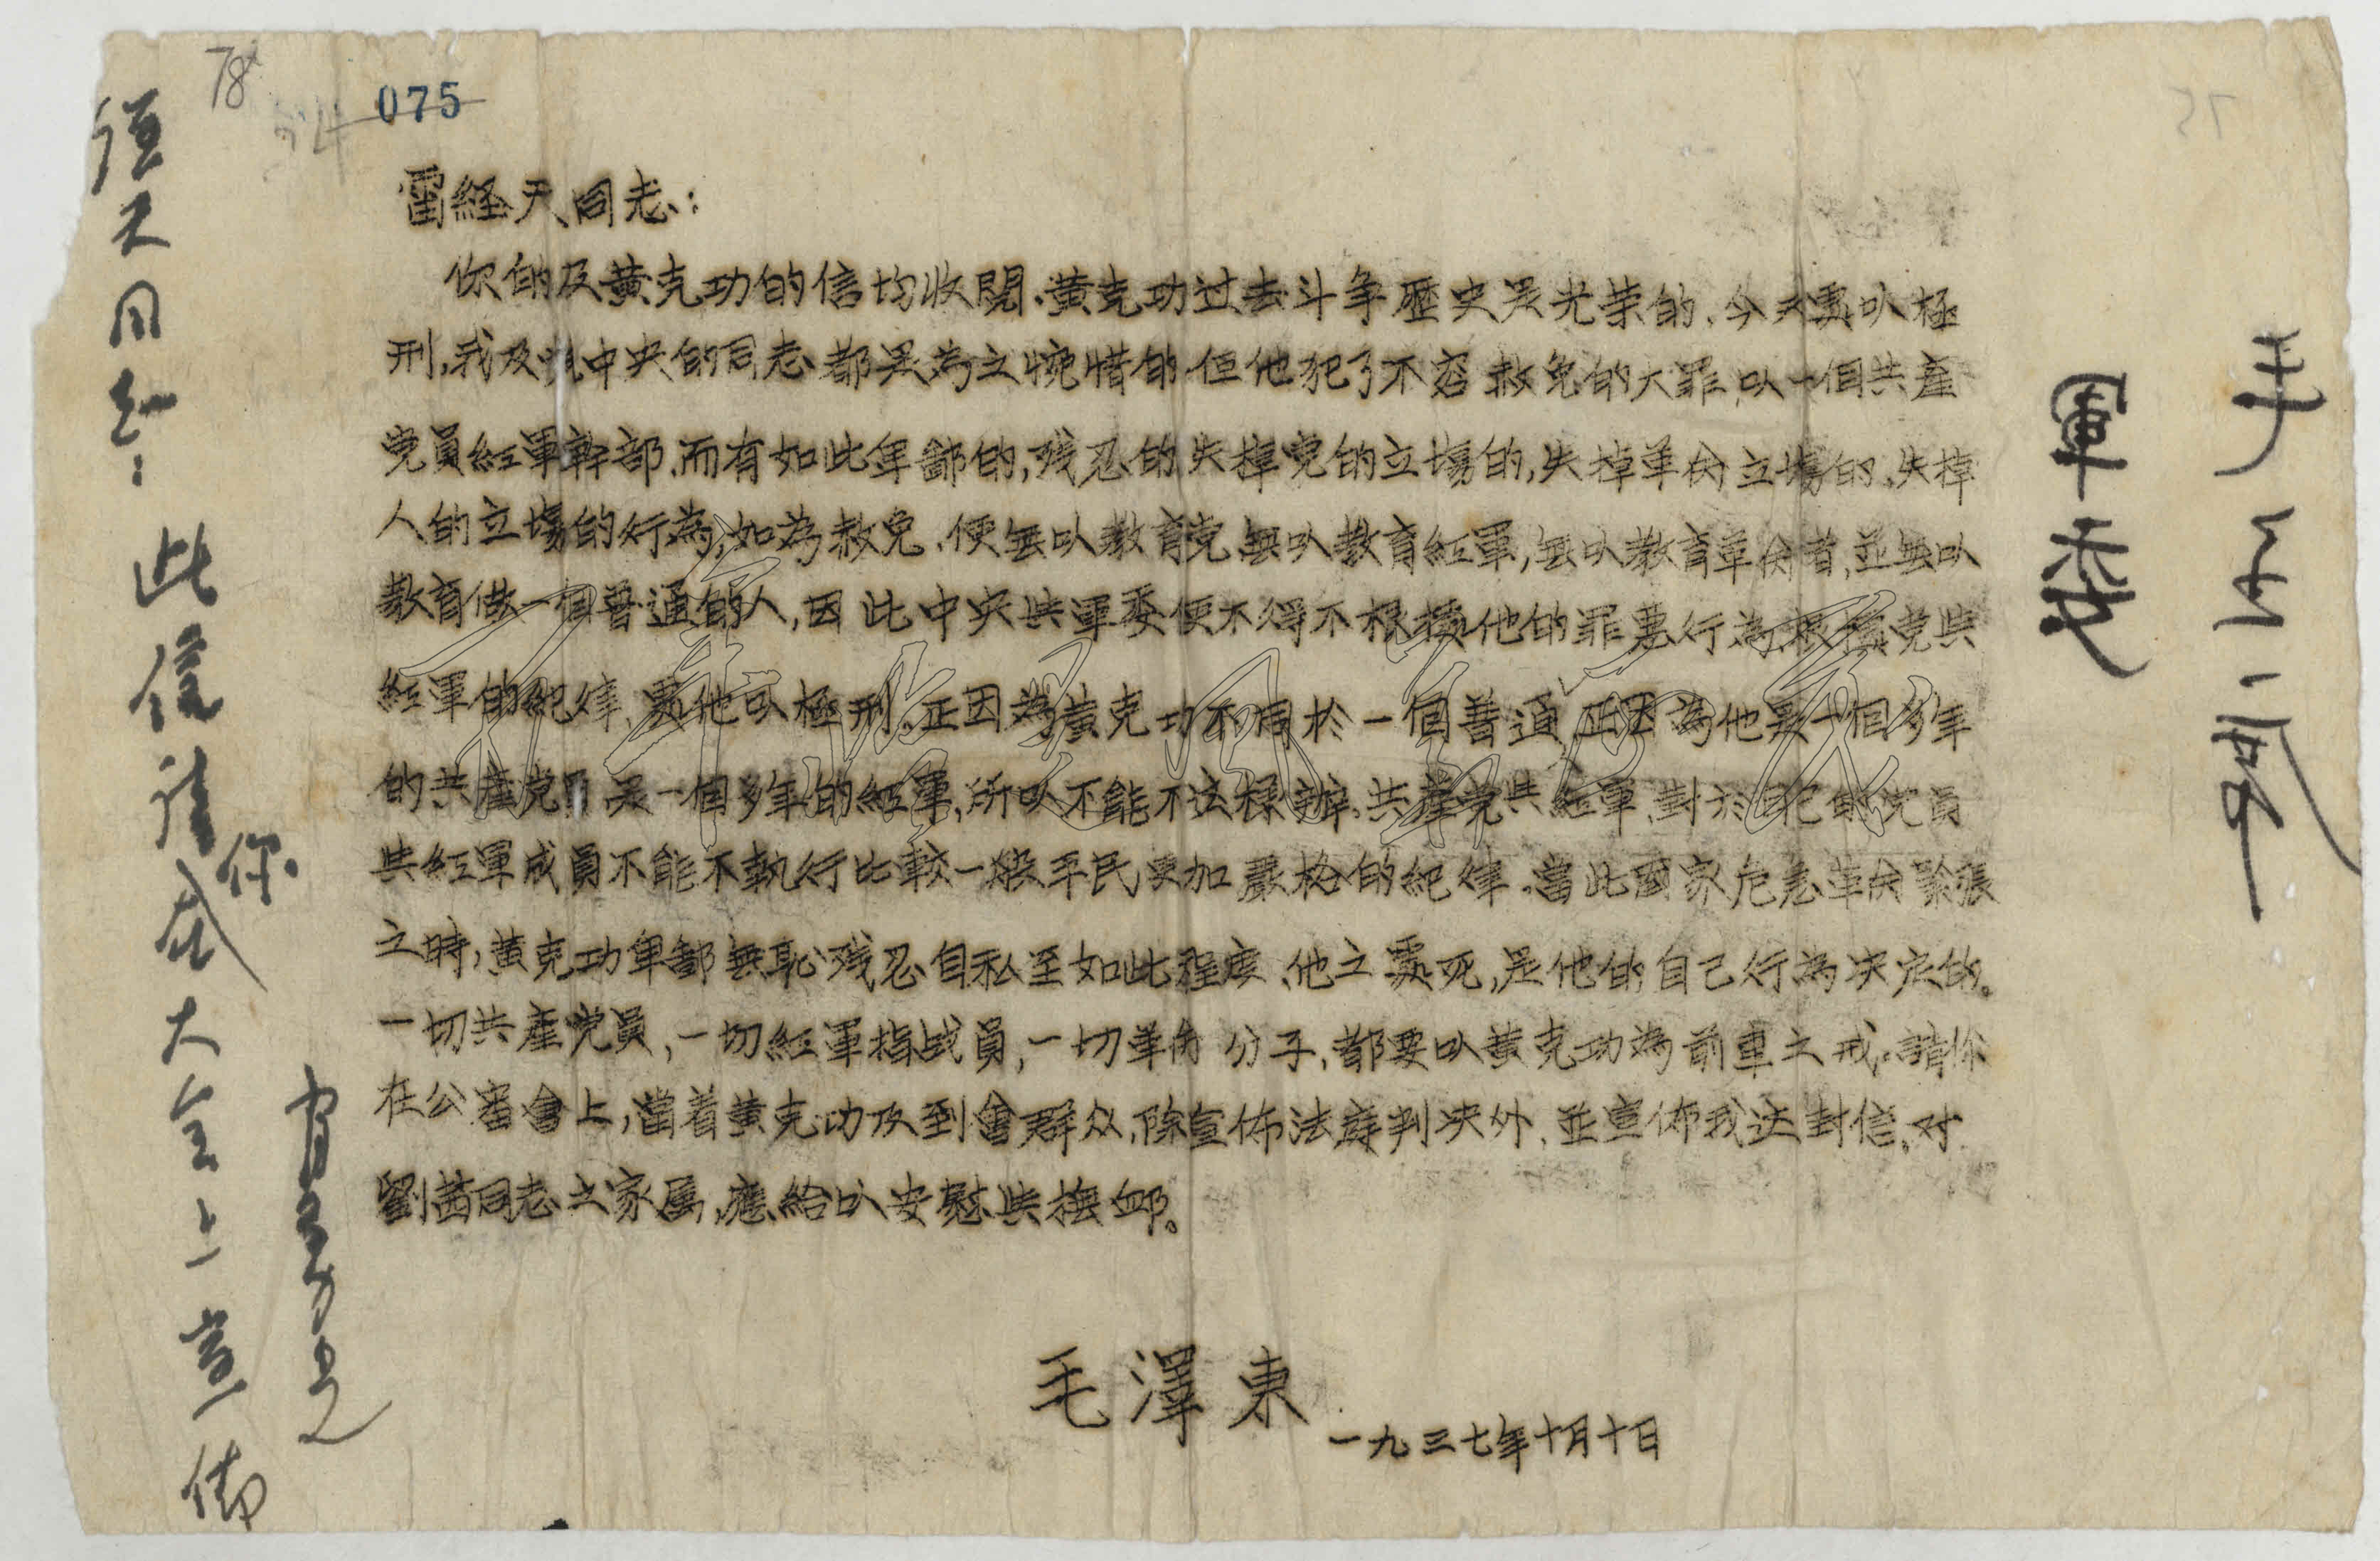 78
74
075
雷經天同志：
你的及黄克功的信均收閱.黄克功过去斗争歷史是光荣的.今天處以極
刑,我及党中央的同志都是為之惋惜的.但他犯了不容赦免的大罪,以一個共產
党員紅軍幹部,而有如此卑鄙的,残忍的失掉党的立場的,失掉革命立場的,失掉
人的立場的行為,如為赦免,便無以教育党,無以教育紅軍,無以教育革命者,並無以
教育做一個普通的人,因此中央與軍委便不得不根據他的罪惡行為,根據党與
紅軍的紀律,處他以極刑.正因為黄克功不同於一個普通,正因為他是一個多年
的共產党,是一個多年的紅軍,所以不能不这樣辦.共產党與紅軍,對於自己的党員
與紅軍成員不能不執行比較一般平民更加嚴格的紀律.當此國家危急革命緊張
之時,黄克功卑鄙無恥残忍自私至如此程度,他之處死,是他的自己行為决定的。
一切共產党員,一切紅軍指战員,一切革命分子,都要以黄克功為前車之戒.請你
在公審會上,當着黄克功及到會群众,除宣佈法庭判决外,並宣佈我这封信.对
劉茜同志之家屬,應給以安慰與撫卹。
毛澤東
一九三七年十月十日
軍委
此信請你在大会上宣佈